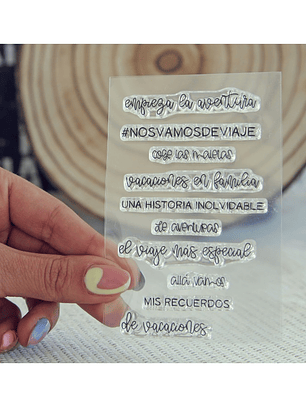 empieza la aventura
#NOSVAMOSDEVIAJE
coge las maletas
vacaciones en familia
UNA HISTORIA INOLVIDABLE
de aventuras
el viaje más especial
allá vamos
MIS RECUERDOS
de vacaciones